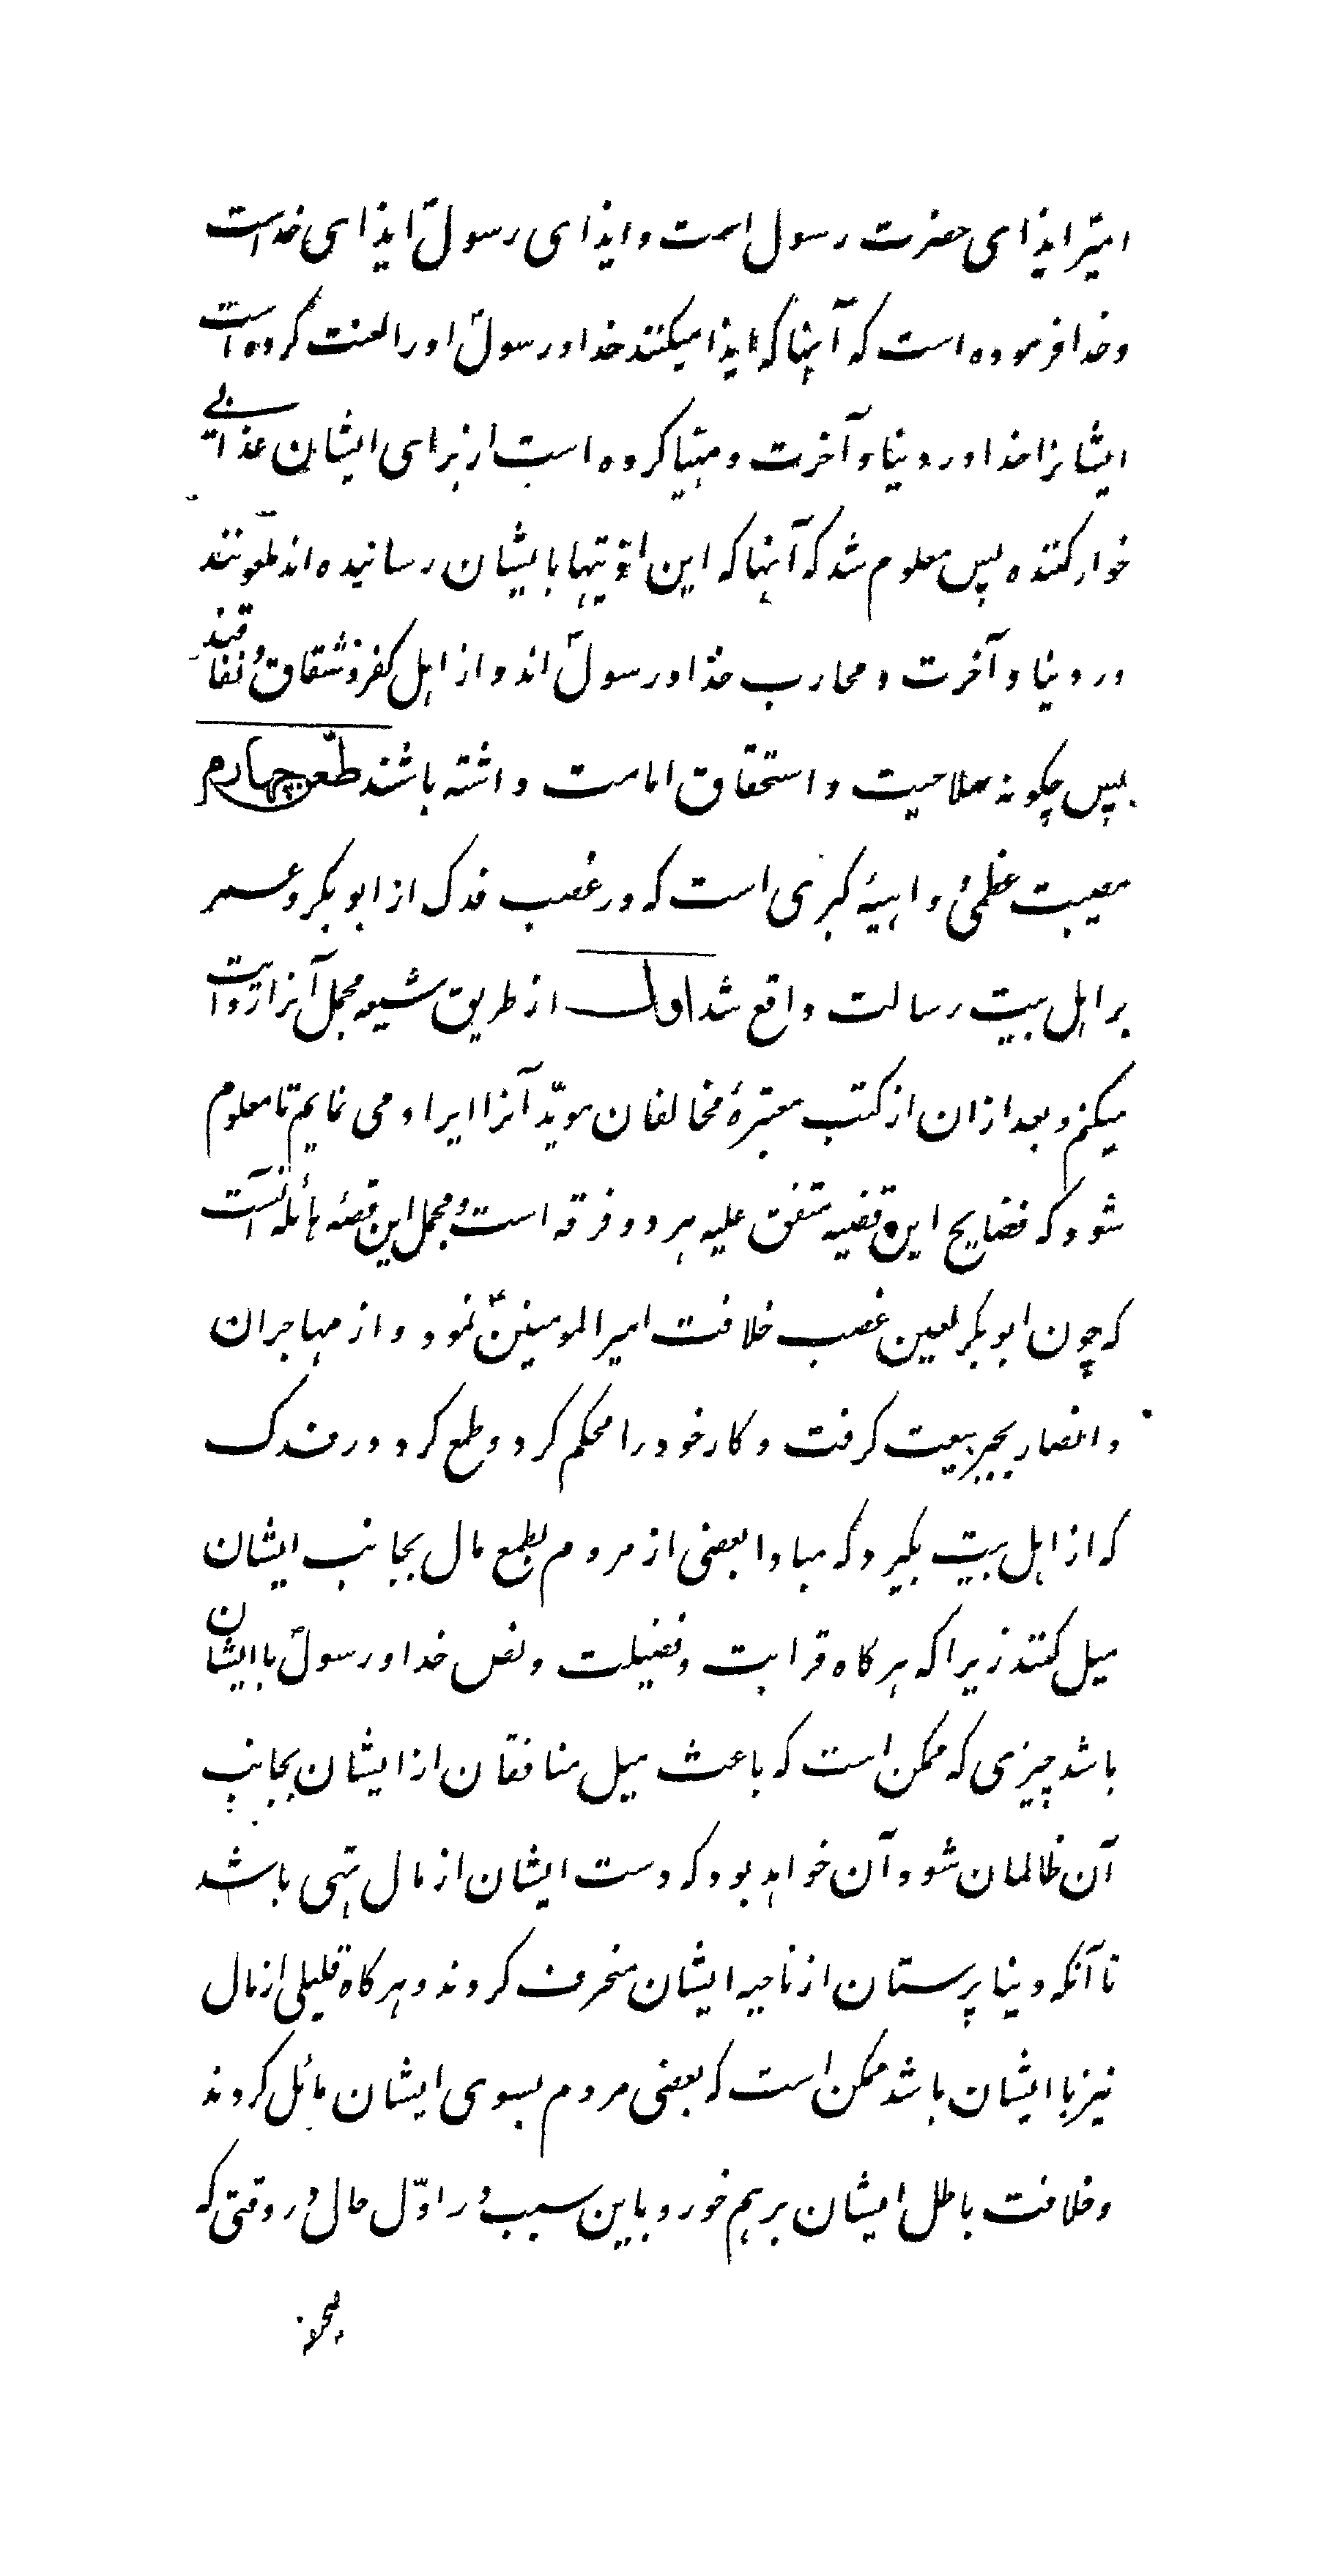 امیر ایذای حضرت رسول است و ایذای رسول ایذای خداست
و خدا فرموده است که آنها که ایذا میکنند خدا و رسول او را لعنت کرده است
ایشانرا خدا در دنیا و آخرت و مهیا کرده است از برای ایشان عذابی
خوار کننده پس معلوم شد که آنها که این اذیتها بایشان رسانیده اند ملعونند
در دنیا و آخرت و محارب خدا و رسولؐ اند و از اهل کفر و شقاق و نفاقند
پس چکونه صلاحیت و استحقاق امامت داشته باشند طعن چهارم
مصیبت عظمی و داهیهٔ کبری است که در غصب فدک از ابوبکر و عمر
بر اهل بیت رسالت واقع شد اول از طریق شیعه مجمل آنرا روایت
میکنم و بعد از ان از کتب معتبرهٔ مخالفان موید آنرا ایراد می نمایم تا معلوم
شود که فضایح این قضیه متفق علیه هر دو فرقه است و مجمل این قصهٔ هائله آنست
که چون ابوبکر لعین غصب خلافت امیرالمومنینؑ نمود و از مهاجران
و انصار بجبر بیعت کرفت و کار خود را محکم کرد و طمع کرد در فدک
که از اهل بیت بکیرد که مبادا بعضی از مردم بطمع مال بجانب ایشان
میل کنند زیرا که هر کاه قرابت و فضیلت و نص خدا و رسولؐ با ایشان
باشد چیزی که ممکن است که باعث میل منافقان از ایشان بجانب
آن ظالمان شود آن خواهد بود که دست ایشان از مال تهی باشد
تا آنکه دنیا پرستان از ناحیه ایشان منحرف کردند و هر کاه قلیلی از مال
نیز با ایشان باشد ممکن است که بعضی مردم بسوی ایشان مائل کردند
و خلافت باطل ایشان برهم خورد و باین سبب در اوّل حال در وقتی که